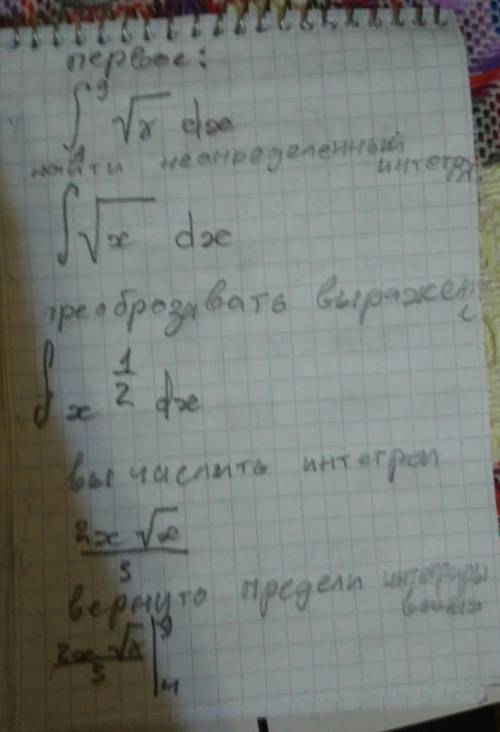 первое:
∫₄⁹ √x dx
найти неопределенный
интегр
∫√x dx
преобразовать выражен
и
∫ x^(1/2) dx
вычислить интеграл
2x√x / 3
вернуто предели интегриры
2x√x / 3 |₄⁹